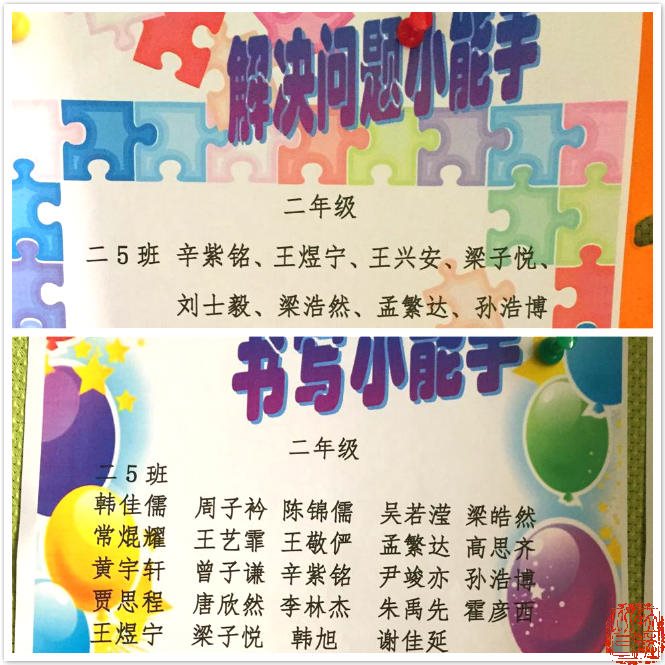 解决问题小能手
二年级
二5班 辛紫铭、王煜宁、王兴安、梁子悦、
刘士毅、梁浩然、孟繁达、孙浩博
书写小能手
二年级
二5班
韩佳儒 周子衿 陈锦儒 吴若滢 梁皓然
常焜耀 王艺霏 王敬俨 孟繁达 高思齐
黄宇轩 曾子谦 辛紫铭 尹竣亦 孙浩博
贾思程 唐欣然 李林杰 朱禹先 霍彦西
王煜宁 梁子悦 韩旭 谢佳延